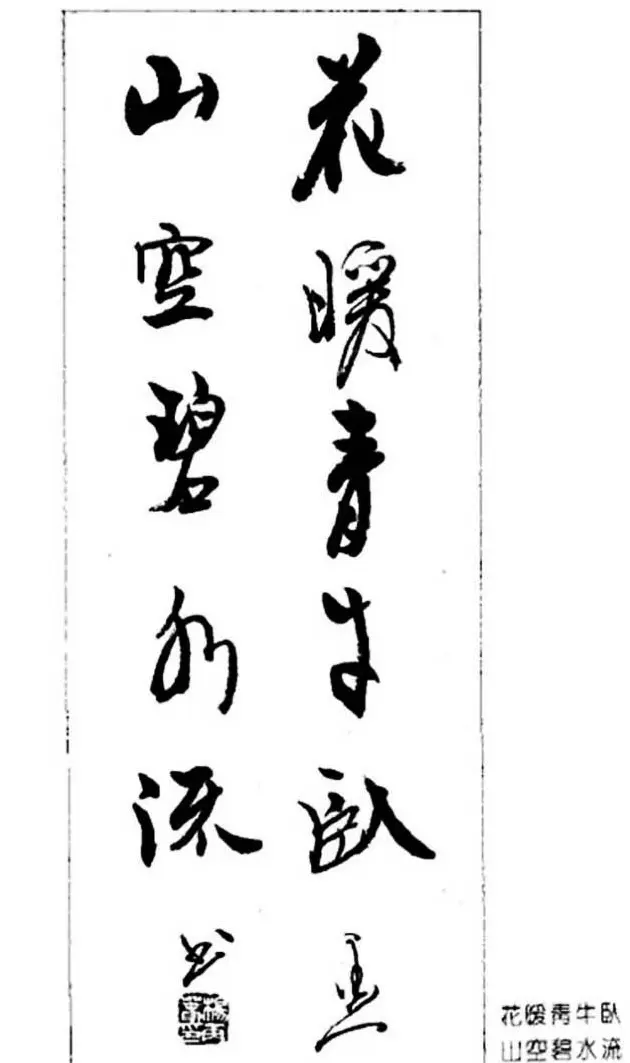 花暖青牛臥
山空碧水流
書
花暖青牛臥
山空碧水流